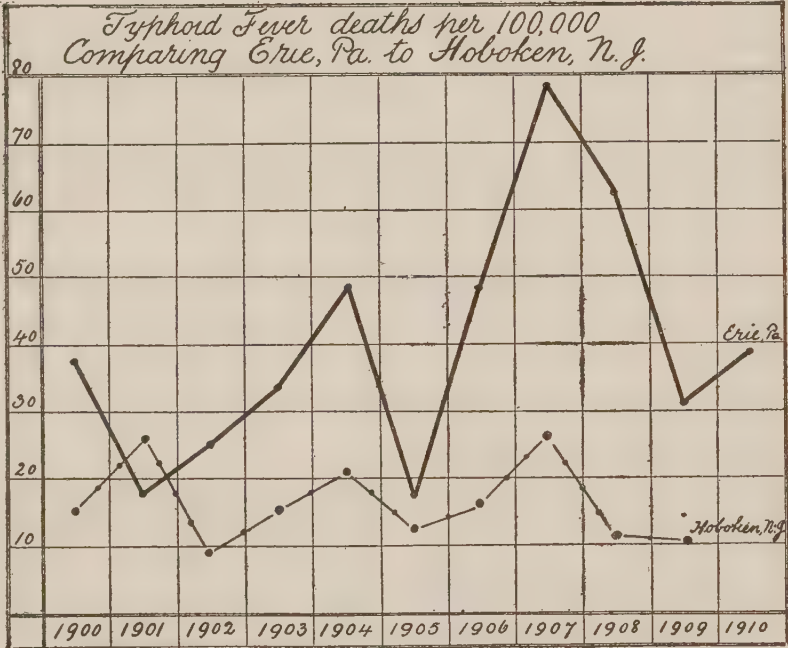 Typhoid Fever deaths per 100,000
Comparing Erie, Pa. to Hoboken, N.J.
80
70
60
50
40
Erie, Pa.
30
20
Hoboken, N.J.
10
1900 1901 1902 1903 1904 1905 1906 1907 1908 1909 1910